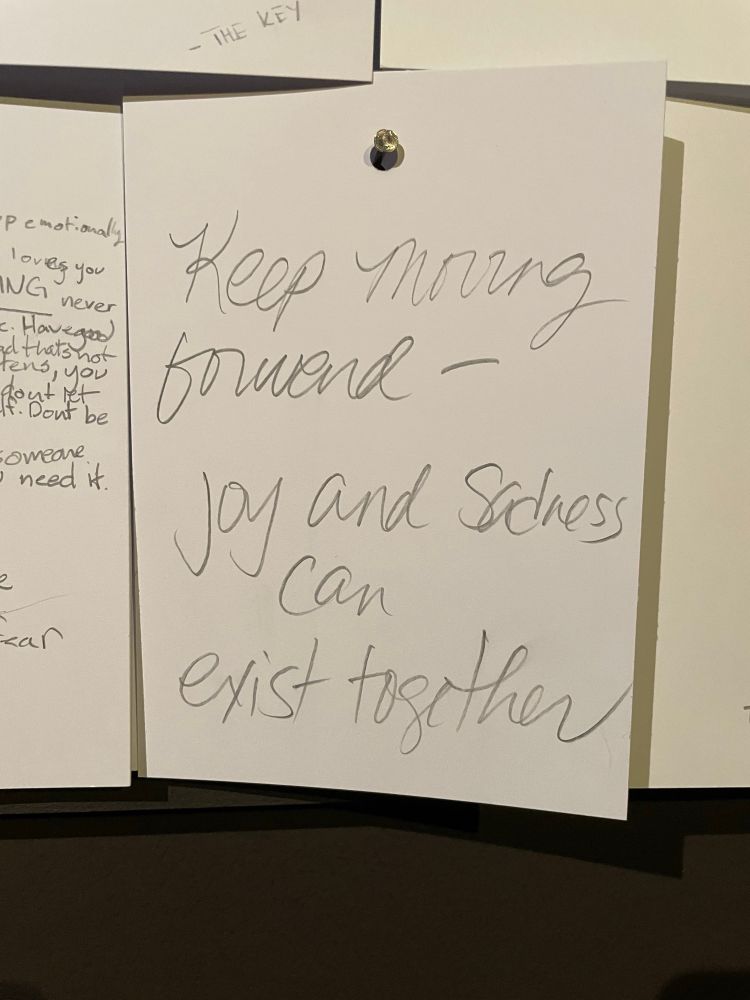 - THE KEY
emotionally
loves you
never
Have good
thats not
you
dont let
Dont be
someone
need it.
Keep moving
forward -
Joy and Sadness
can
exist together